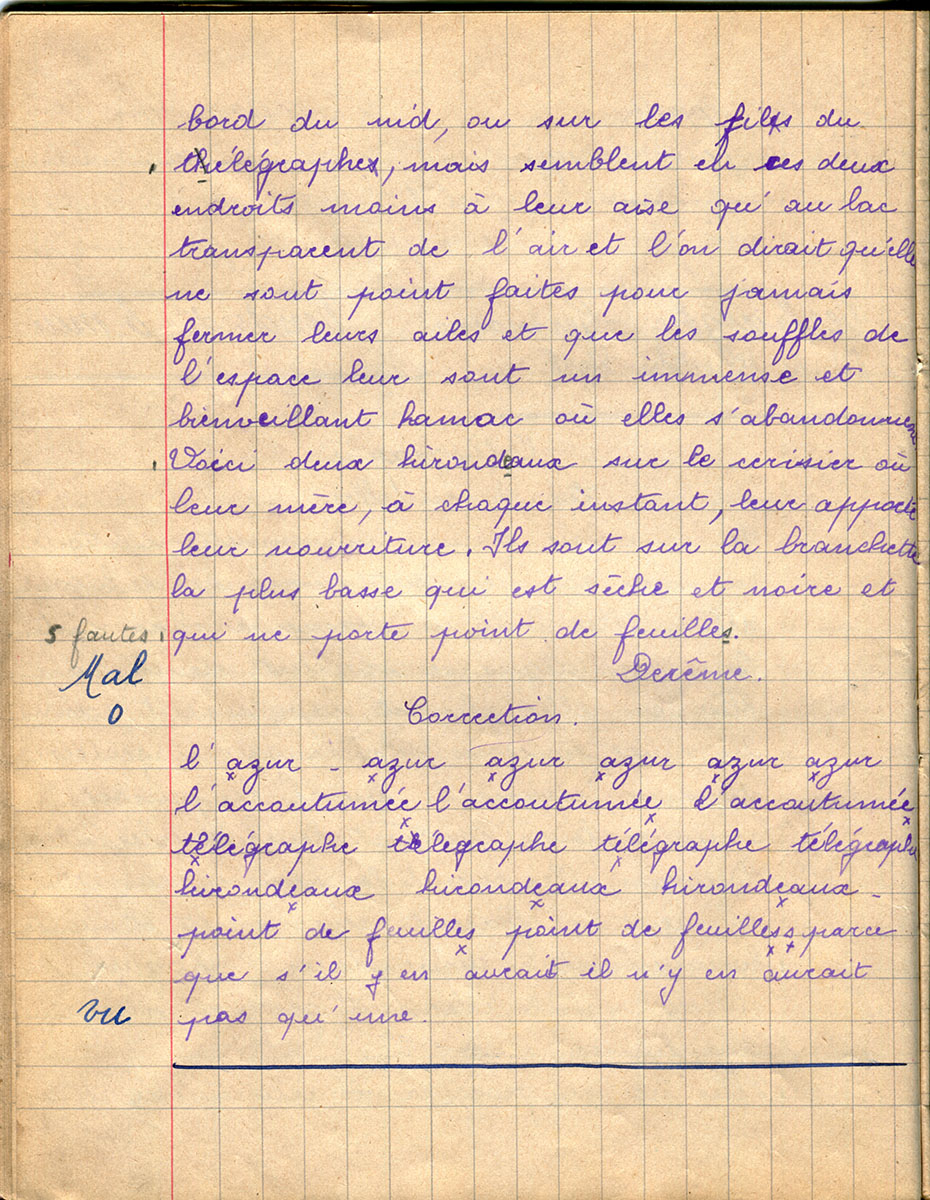 bord du nid, ou sur les fils du
thélégraphe, mais semblent en ces deux
endroits moins à leur aise qu'au lac
transparent de l'air et l'on dirait qu'elle
ne sont point faites pour jamais
fermer leurs ailes et que les souffles de
l'espace leur sont un immense et
bienveillant hamac où elles s'abandonnent
Voici deux hirondeaux sur le cerisier où
leur mère, à chaque instant, leur apporte
leur nourriture. Ils sont sur la branchette
la plus basse qui est sèche et noire et
5 fautes qui ne porte point de feuilles.
Mal
Derême.
0
Correction.
l'azur - azur azur azur azur azur
l'accoutumée l'accoutumée l'accoutumée
télégraphe télégraphe télégraphe télégraphe
hirondeaux hirondeaux hirondeaux -
point de feuilles point de feuilles parce
que s'il y en aurait il n'y en aurait
vu pas qu'une.